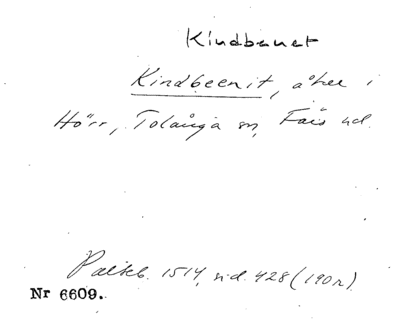 Kindbenet
Kindbeenit, åker i
Hörr, Tolånga sn, Färs hd.
Palkb. 1514, sid. 428 (190r)
Nr 6609.